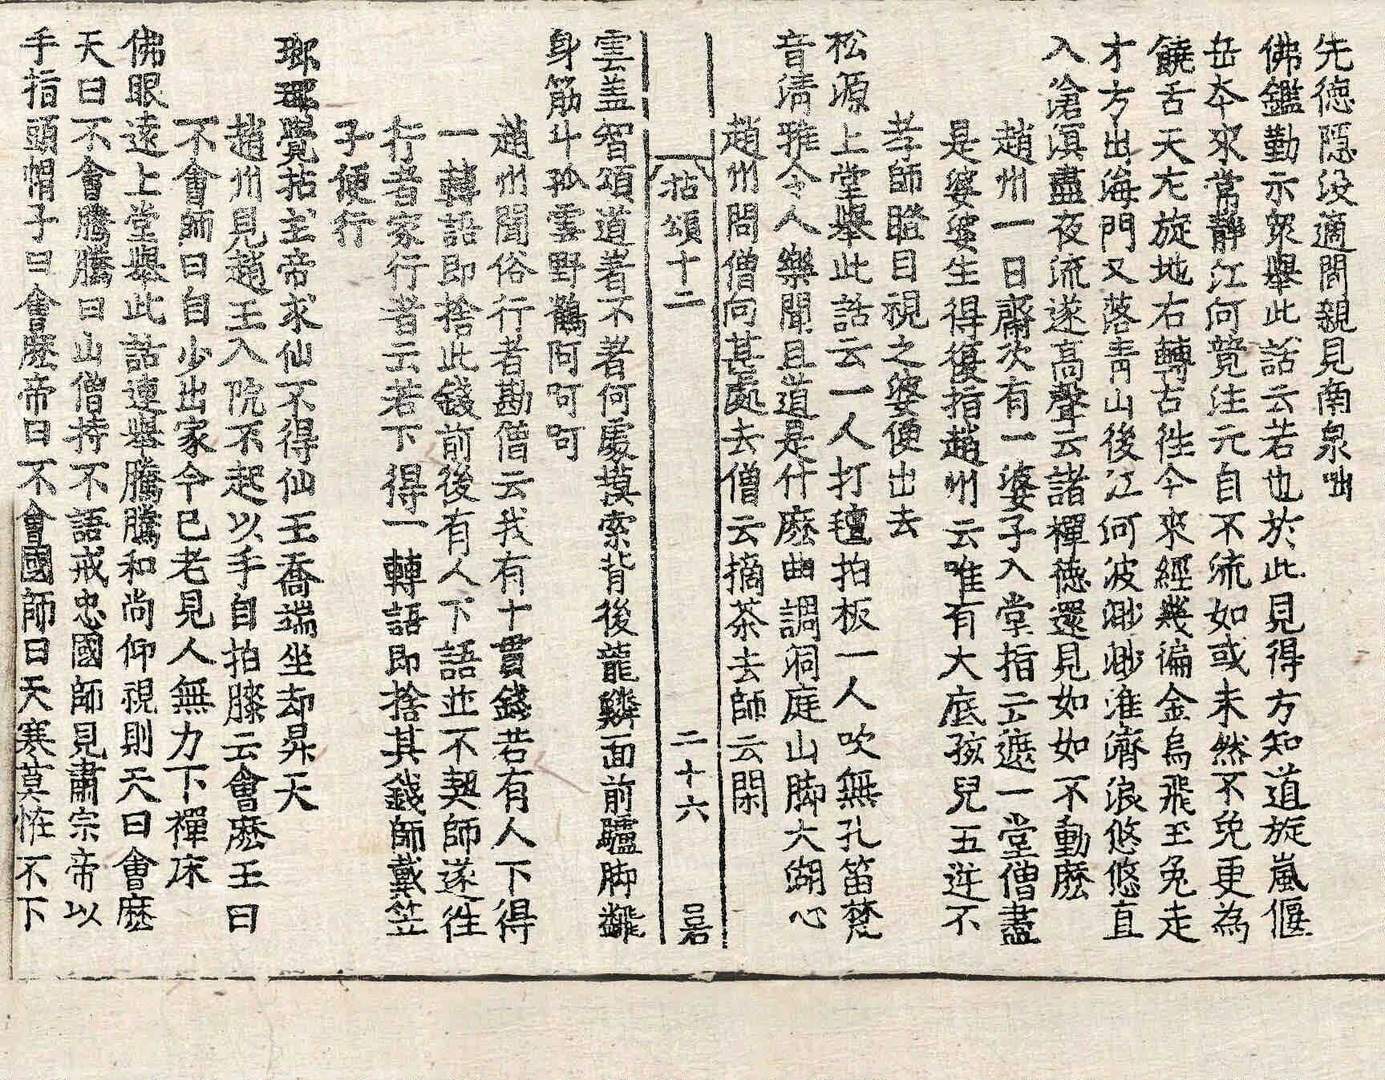 先德隱没適間親見南泉咄
佛鑑勤示衆擧此話云若也於此見得方知道旋嵐偃
岳本來常靜江河競注元自不流如或未然不免更為
饒舌天左旋地右轉古徃今來經幾徧金烏飛玉兔走
才方出海門又落靑山後江河波渺渺淮濟浪悠悠直
入滄溟晝夜流遂高聲云諸禪德還見如如不動麽
趙州一日齋次有一婆子入堂指云遮一堂僧盡
是婆婆生得復指趙州云唯有大底孩兒五逆不
孝師瞪目視之婆便出去
松源上堂擧此話云一人打氊拍板一人吹無孔笛梵
音淸雅令人樂聞且道是什麽曲調洞庭山脚大湖心
趙州問僧向甚處去僧云摘茶去師云閑
拈頌十二 二十六
雲盖智頌道著不著何處摸索背後龍鱗面前驢脚飜
身筋斗孤雲野鶴阿呵呵
趙州聞俗行者勘僧云我有十貫錢若有人下得
一轉語即捨此錢前後有人下語並不契師遂徃
行者家行者云若下得一轉語即捨其錢師戴笠
子便行
瑯琊覺拈主帝求仙不得仙王喬端坐却昇天
趙州見趙王入院不起以手自拍膝云會麽王曰
不會師曰自少出家今已老見人無力下禪床
佛眼遠上堂擧此話連擧騰騰和尚仰視則天曰會麽
天曰不會騰騰曰山僧持不語戒忠國師見肅宗帝以
手指頭帽子曰會麽帝曰不會國師曰天寒莫怪不下